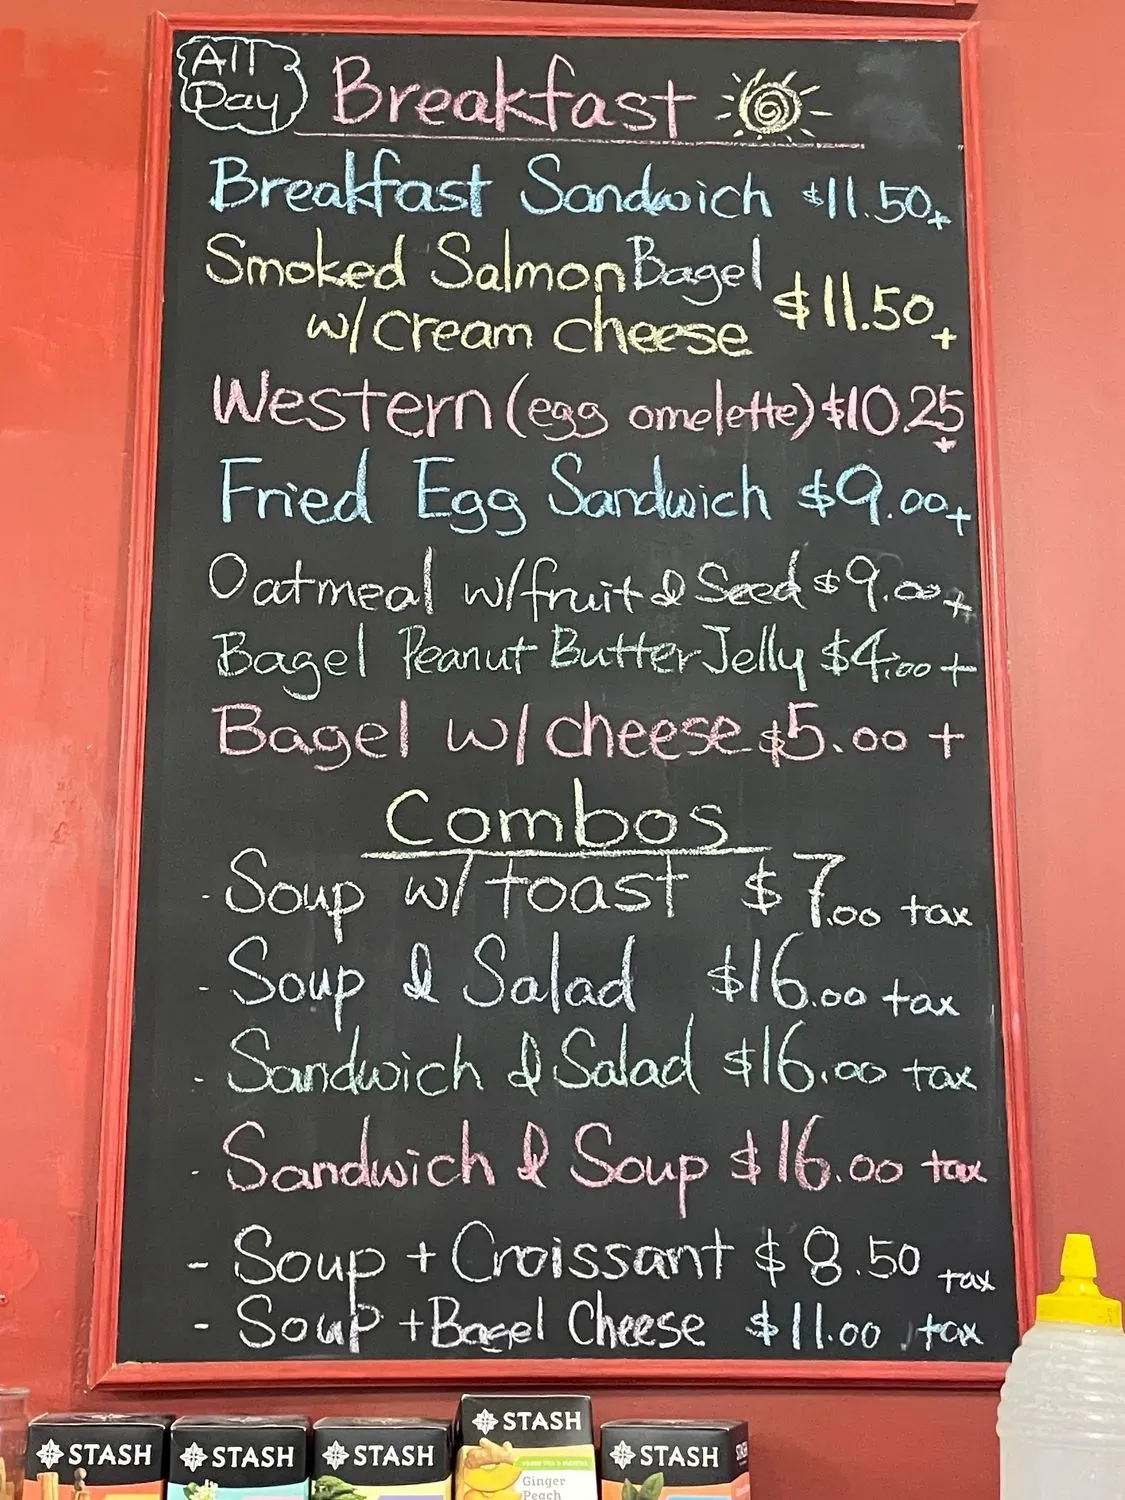 All
Day
Breakfast
Breakfast Sandwich $11.50+
Smoked Salmon Bagel
w/cream cheese $11.50+
Western (egg omelette) $10.25+
Fried Egg Sandwich $9.00+
Oatmeal w/fruit & Seed $9.00+
Bagel Peanut Butter Jelly $4.00+
Bagel w/ cheese $5.00 +
Combos
- Soup w/ toast $7.00 tax
- Soup & Salad $16.00 tax
- Sandwich & Salad $16.00 tax
- Sandwich & Soup $16.00 tax
- Soup + Croissant $8.50 tax
- Soup + Bagel Cheese $11.00 tax
STASH
STASH
STASH
STASH
STASH
Ginger
Peach